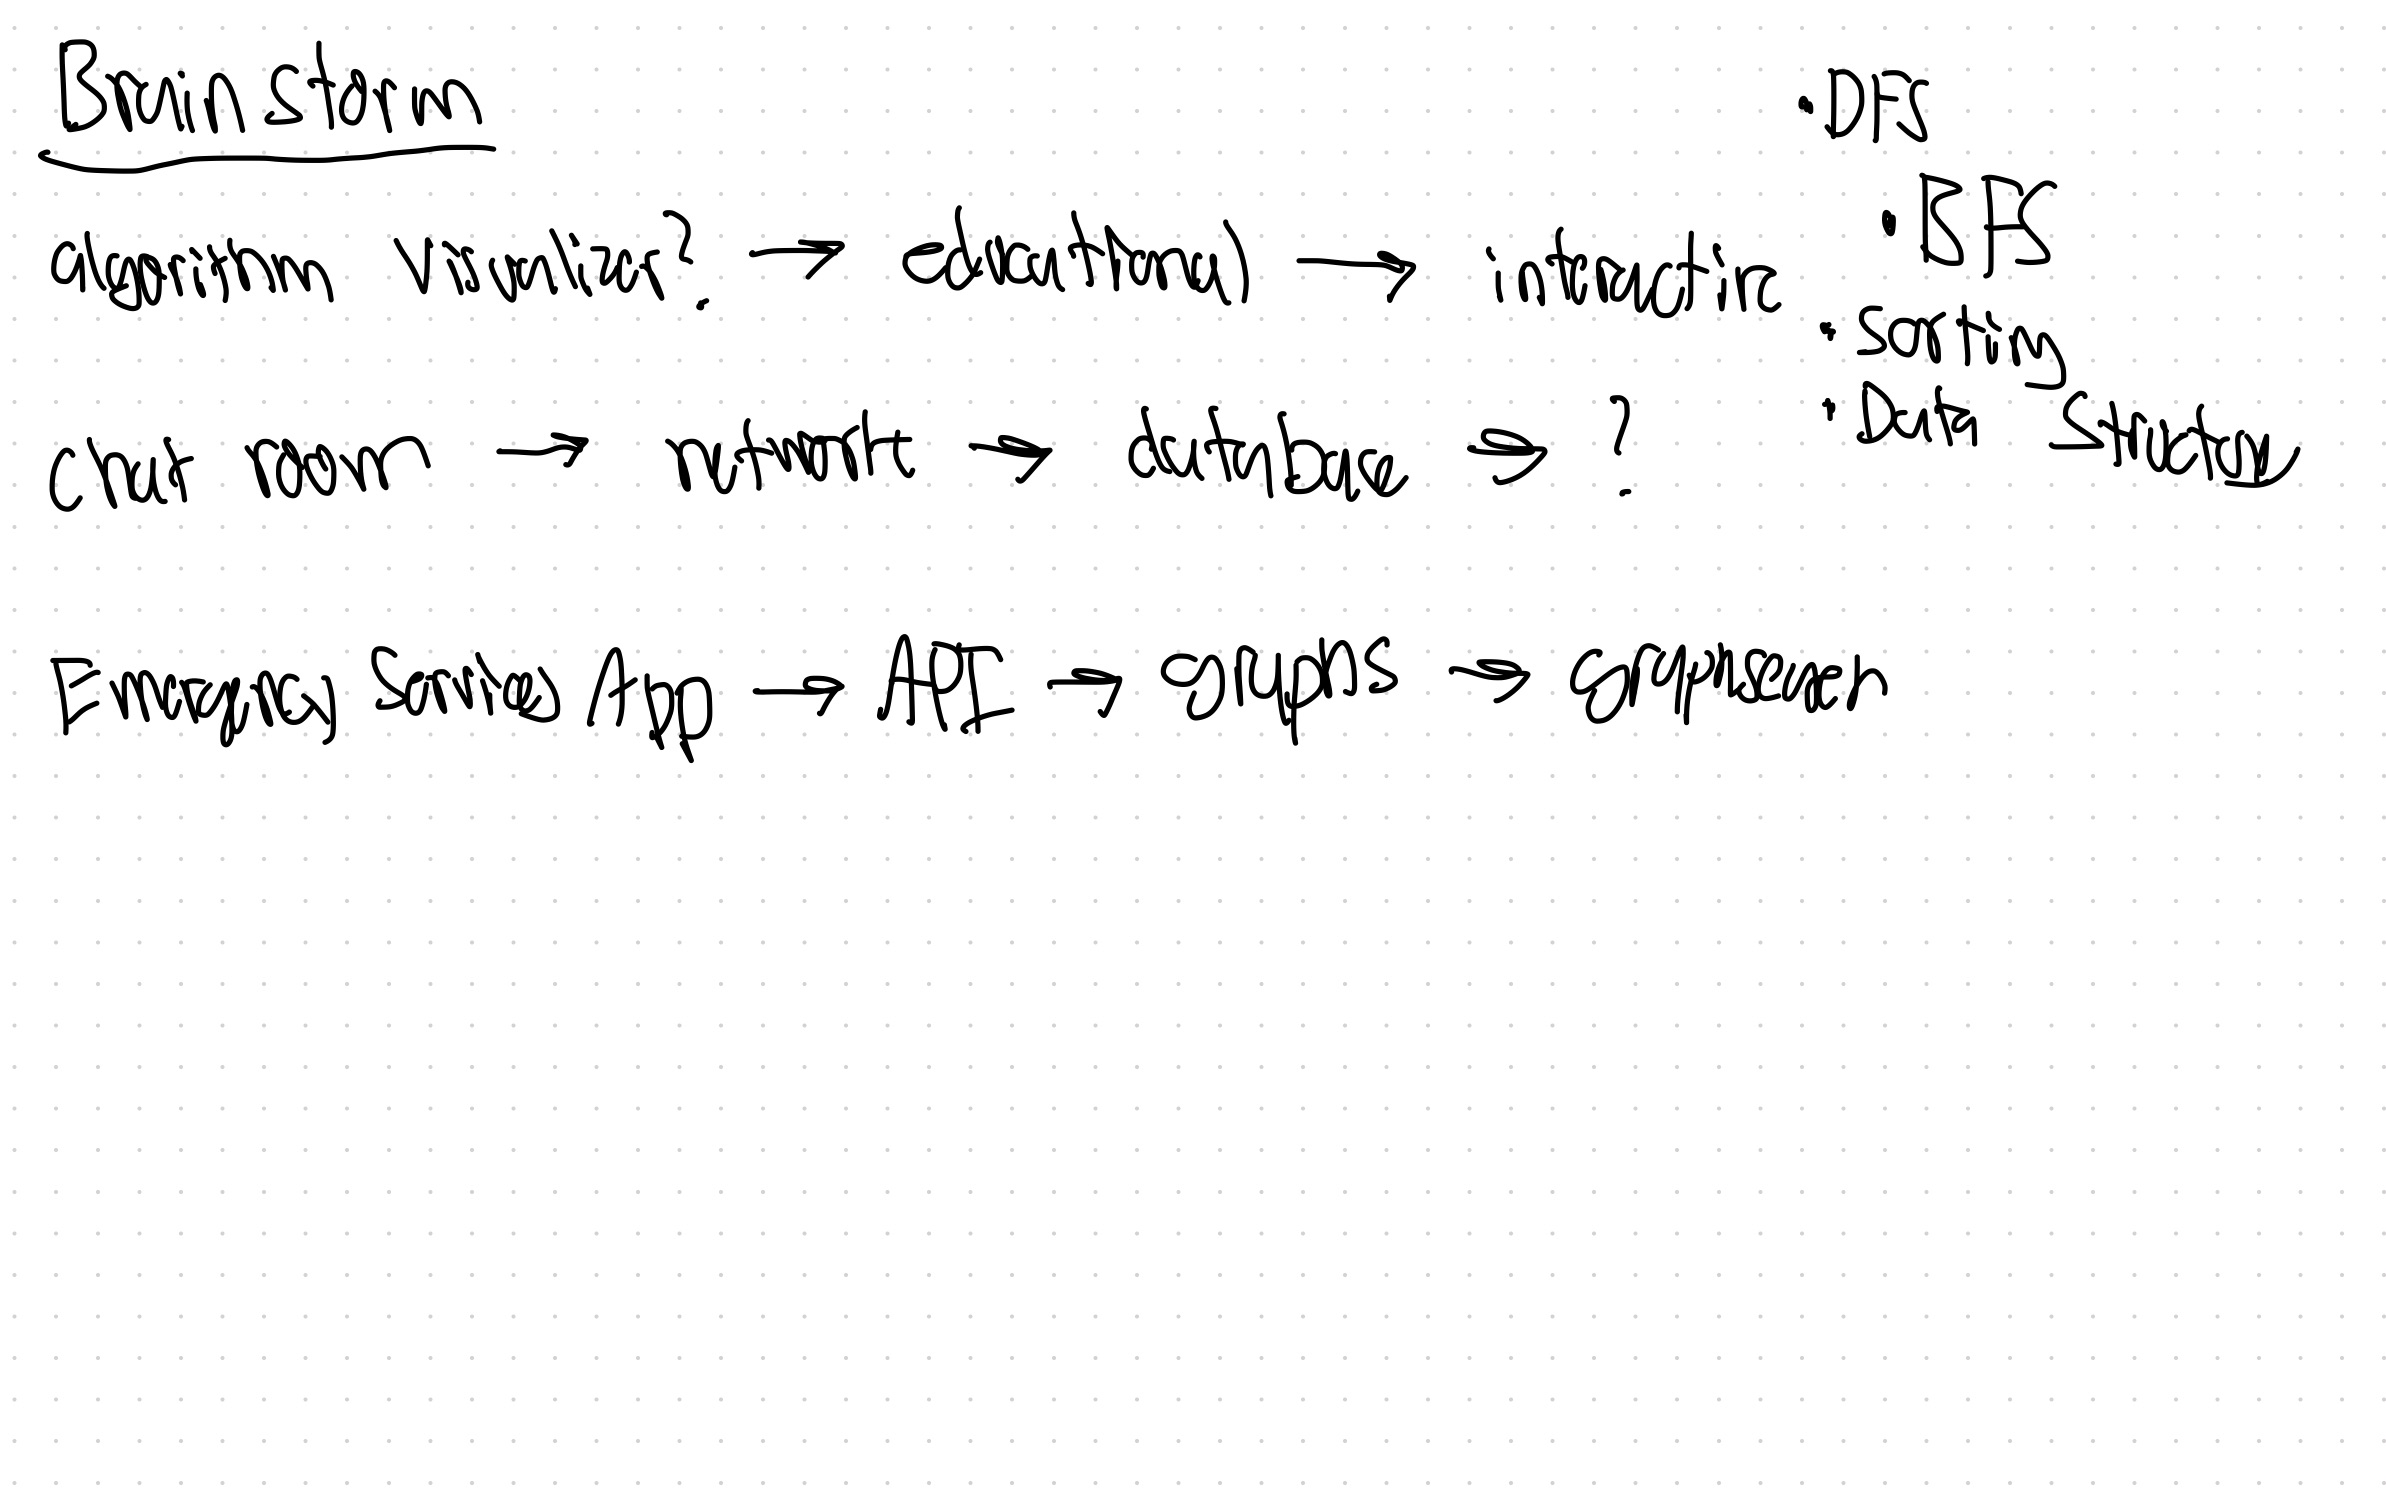 Brain storm
algorithm visualizer? → educational → interactive
• DFS
• BFS
• sorting
• Data structures
chat room → → database → ?
Emergency Service App → API → →